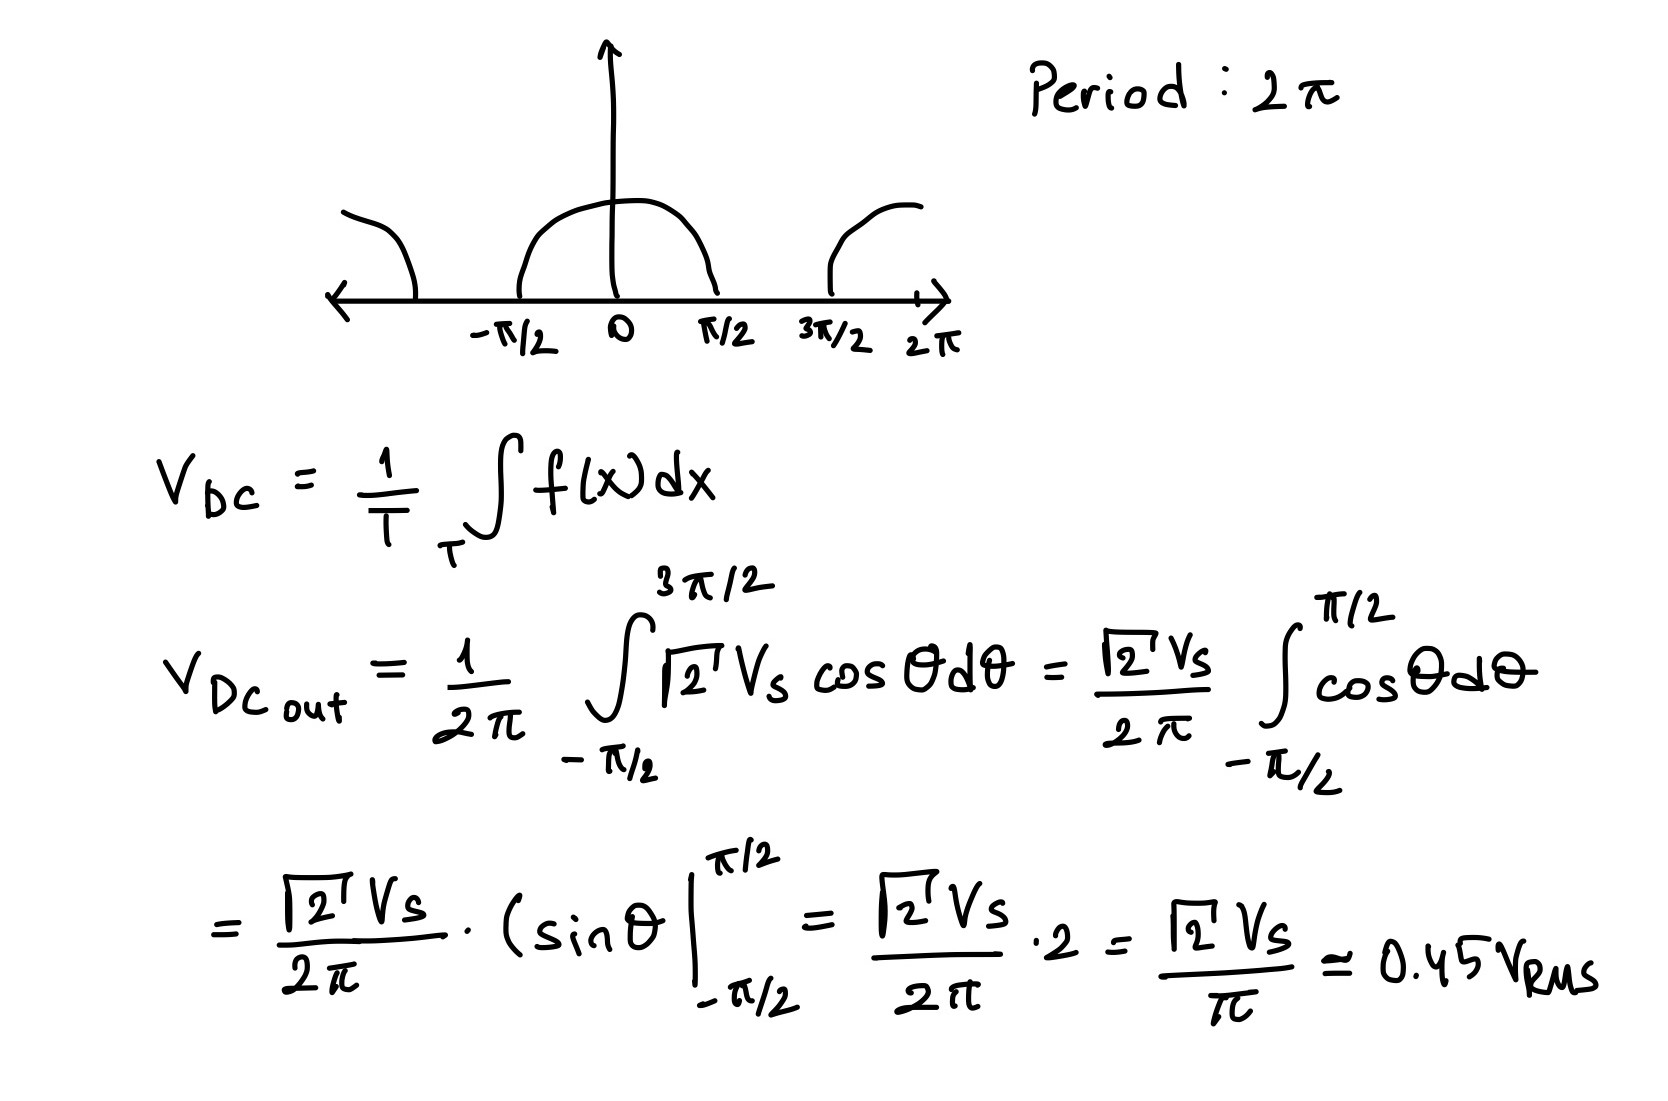 Period : 2π
-π/2 0 π/2 3π/2 2π
V_DC = 1/T ∫_T f(x)dx
V_DC out = 1/2π ∫_{-π/2}^{3π/2} √2 Vs cos θdθ = √2 Vs/2π ∫_{-π/2}^{π/2} cosθdθ
= √2 Vs/2π · (sinθ |_{-π/2}^{π/2} = √2 Vs/2π · 2 = √2 Vs/π ≃ 0.45 V_RMS